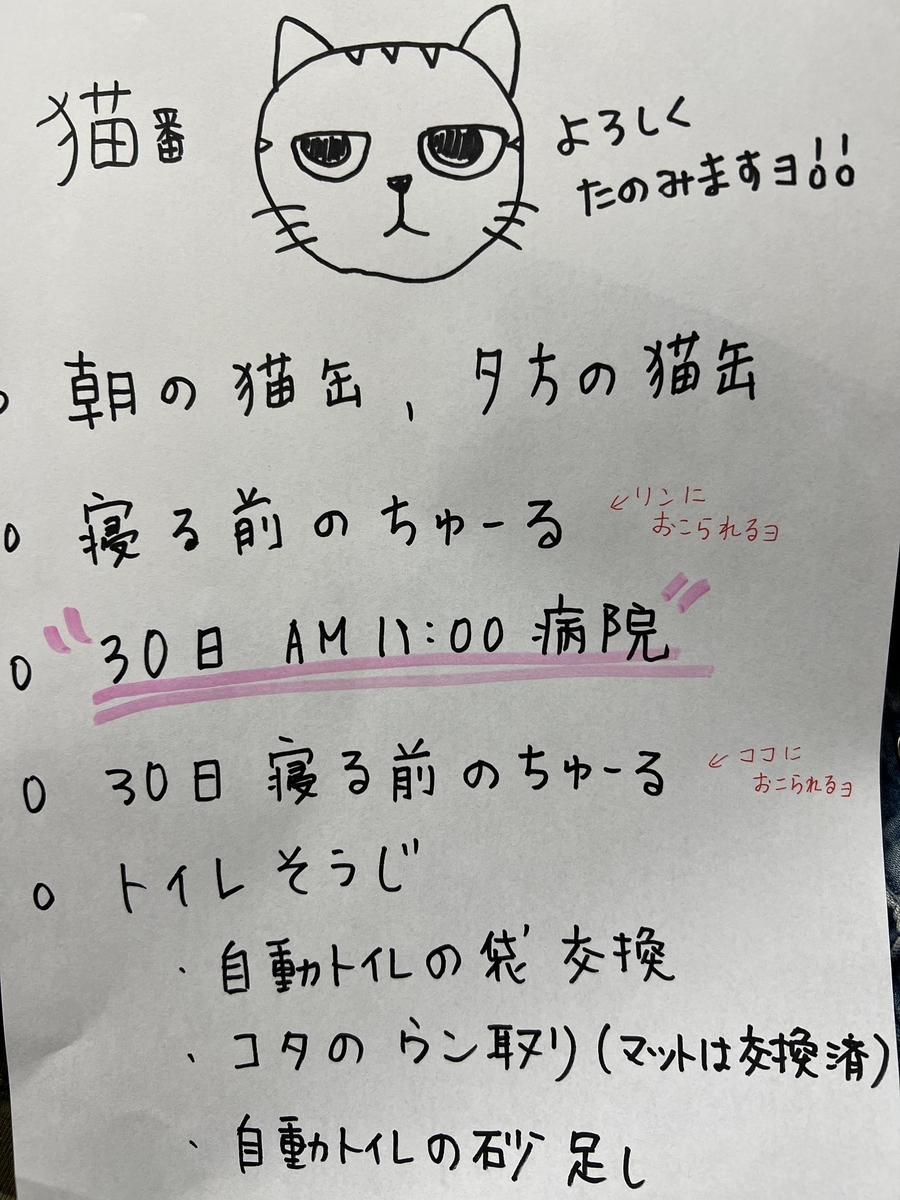 猫番
よろしく
たのみますヨ!!
○ 朝の猫缶、夕方の猫缶
○ 寝る前のちゅーる
←リンに
おこられるヨ
○ "30日 AM 11:00 病院"
○ 30日 寝る前のちゅーる
←ココに
おこられるヨ
○ トイレそうじ
・自動トイレの袋 交換
・コタのウン取り(マットは交換済)
・自動トイレの砂 足し